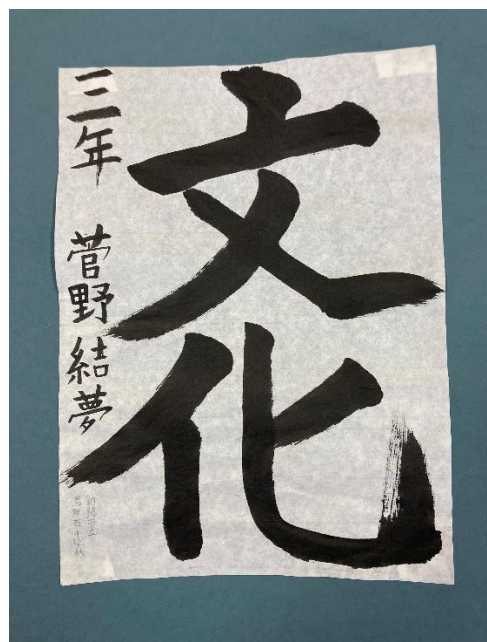 文化
三年 菅野結夢